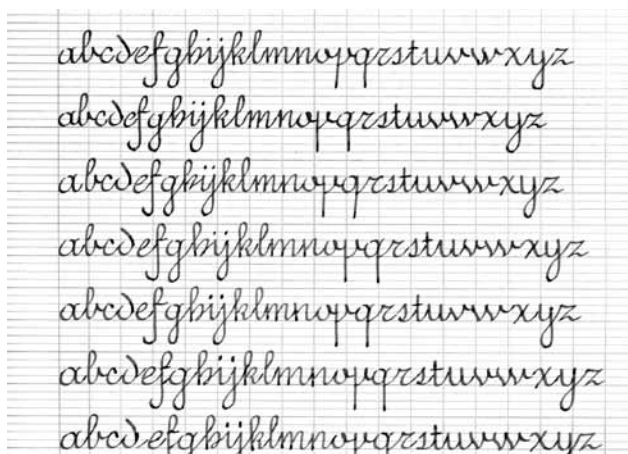 abcdefghijklmnopqrstuvwxyz
abcdefghijklmnopqrstuvwxyz
abcdefghijklmnopqrstuvwxyz
abcdefghijklmnopqrstuvwxyz
abcdefghijklmnopqrstuvwxyz
abcdefghijklmnopqrstuvwxyz
abcdefghijklmnopqrstuvwxyz